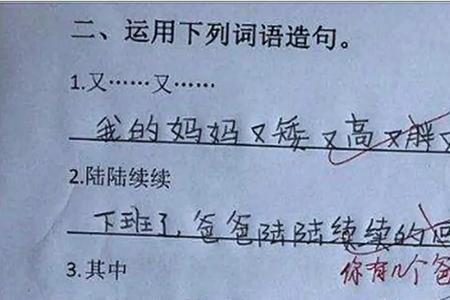 二、运用下列词语造句。
1.又……又……
我的妈妈又矮又高又胖
2.陆陆续续
下班了，爸爸陆陆续续的
3.其中
你有几个爸